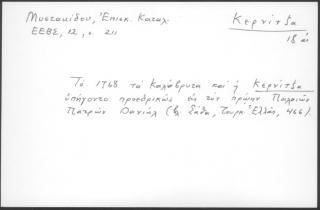 Μυστακίδου, Ἐπισκ. Καταλ.
ΕΕΒΣ, 12, σ. 211
Κερνίτζα
18 αἰ
Τὸ 1768 τὰ Καλάβρυτα καὶ ἡ Κερνίτζα
ὑπήγοντο προεδρικῶς εἰς τὸν πρώην Παλαιῶν
Πατρῶν Δανιὴλ (βλ. Σάθα, Τουρκ. Ἑλλάς, 466).